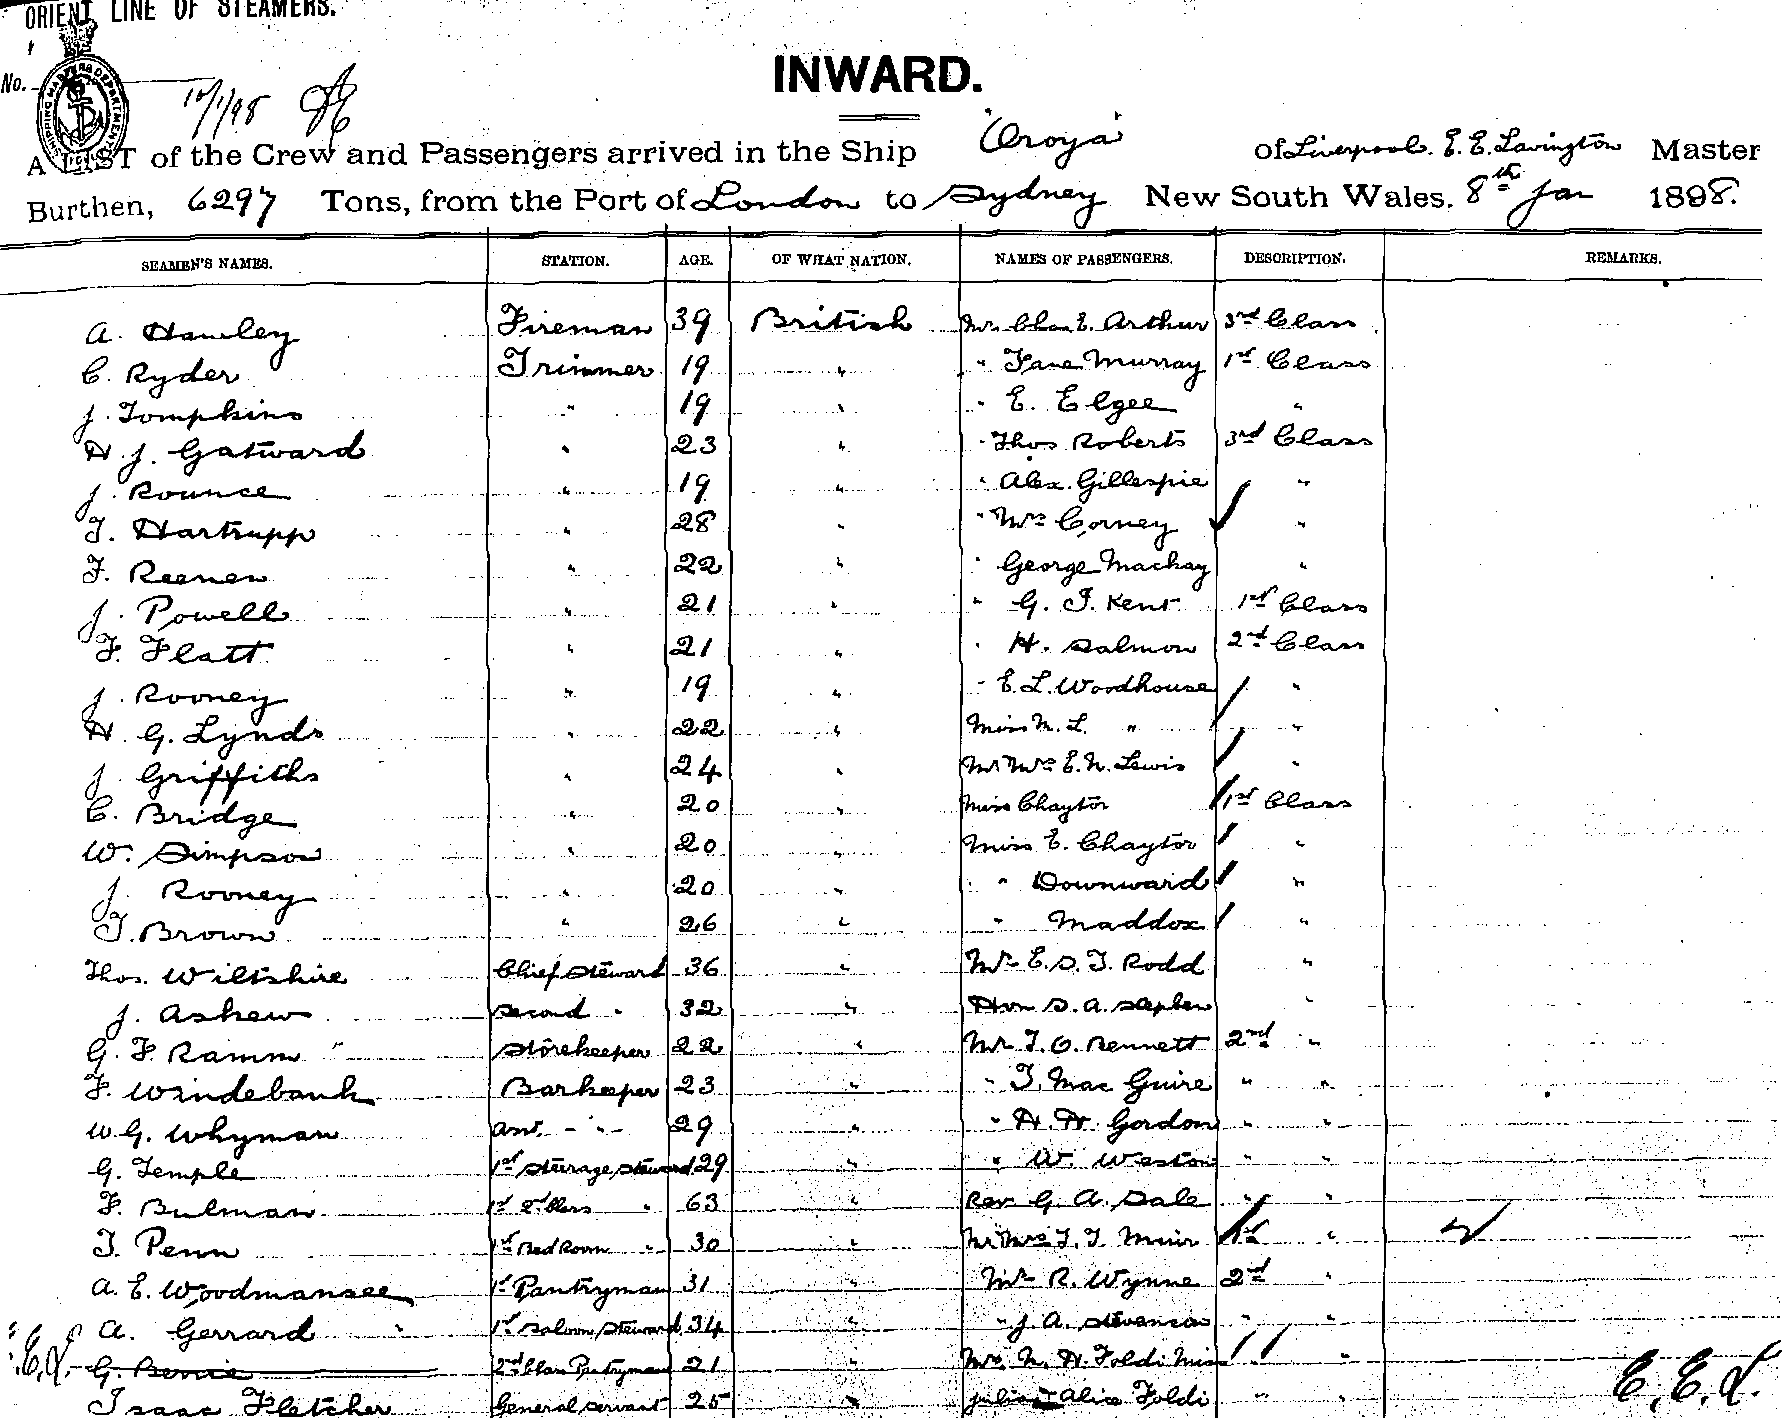 ORIENT LINE OF STEAMERS.
INWARD.
No. 10/1/98
A LIST of the Crew and Passengers arrived in the Ship "Oroya" of Liverpool. E. E. Lavington Master
Burthen, 6297 Tons, from the Port of London to Sydney New South Wales. 8th Jan 1898.
SEAMEN'S NAMES. STATION. AGE. OF WHAT NATION. NAMES OF PASSENGERS. DESCRIPTION. REMARKS.
A. Hawley Fireman 39 British Mr. Chas E. Arthur 3rd Class
C. Ryder Trimmer 19 " " Fane Murray 1st Class
J. Tompkins " 19 " " E. Elgee "
H. J. Gatward " 23 " " Thos Roberts 3rd Class
J. Rounce " 19 " " Alex. Gillespie "
T. Hartrupp " 28 " " Mrs Corney "
F. Reenen " 22 " " George Mackay "
J. Powell " 21 " " G. T. Kent 1st Class
F. Flatt " 21 " " H. Salmon 2nd Class
J. Rooney " 19 " " E. L. Woodhouse "
H. G. Lynds " 22 " Miss M. L. " "
J. Griffiths " 24 " Mr Mrs E. N. Lewis "
C. Bridge " 20 " Miss Chaytor 1st Class
W. Simpson " 20 " Miss E. Chaytor "
J. Rooney " 20 " " Downward "
T. Brown " 26 " " Maddox "
Thos. Wiltshire Chief Steward 36 " Mr E. S. T. Rodd "
J. Askew Second " 32 " Hon S. A. Stephen "
G. F. Ramm Storekeeper 22 " Mr T. O. Bennett 2nd "
F. Windebank Barkeeper 23 " " T. Mac Guire " "
W. G. Whyman Asst. - " - 29 " " H. H. Gordon " "
G. Temple 1st Steerage Steward 29 " " W. Weston " "
F. Bulman 1st 2nd Class " 63 " Rev. G. A. Sale " "
T. Penn 1st Bed Room " 30 " Mr Mrs T. T. Muir 1st "
A. E. Woodmansee 1st Pantryman 31 " Mr R. Wynne 2nd "
A. Gerrard 1st Saloon Steward 34 " " J. A. Stevenson " "
G. Bernie 2nd Class Pantryman 21 " Mrs. N. H. Foldi Miss "
Isaac Fletcher General Servant 25 " Julia Alice Foldi " "
E. E. L.